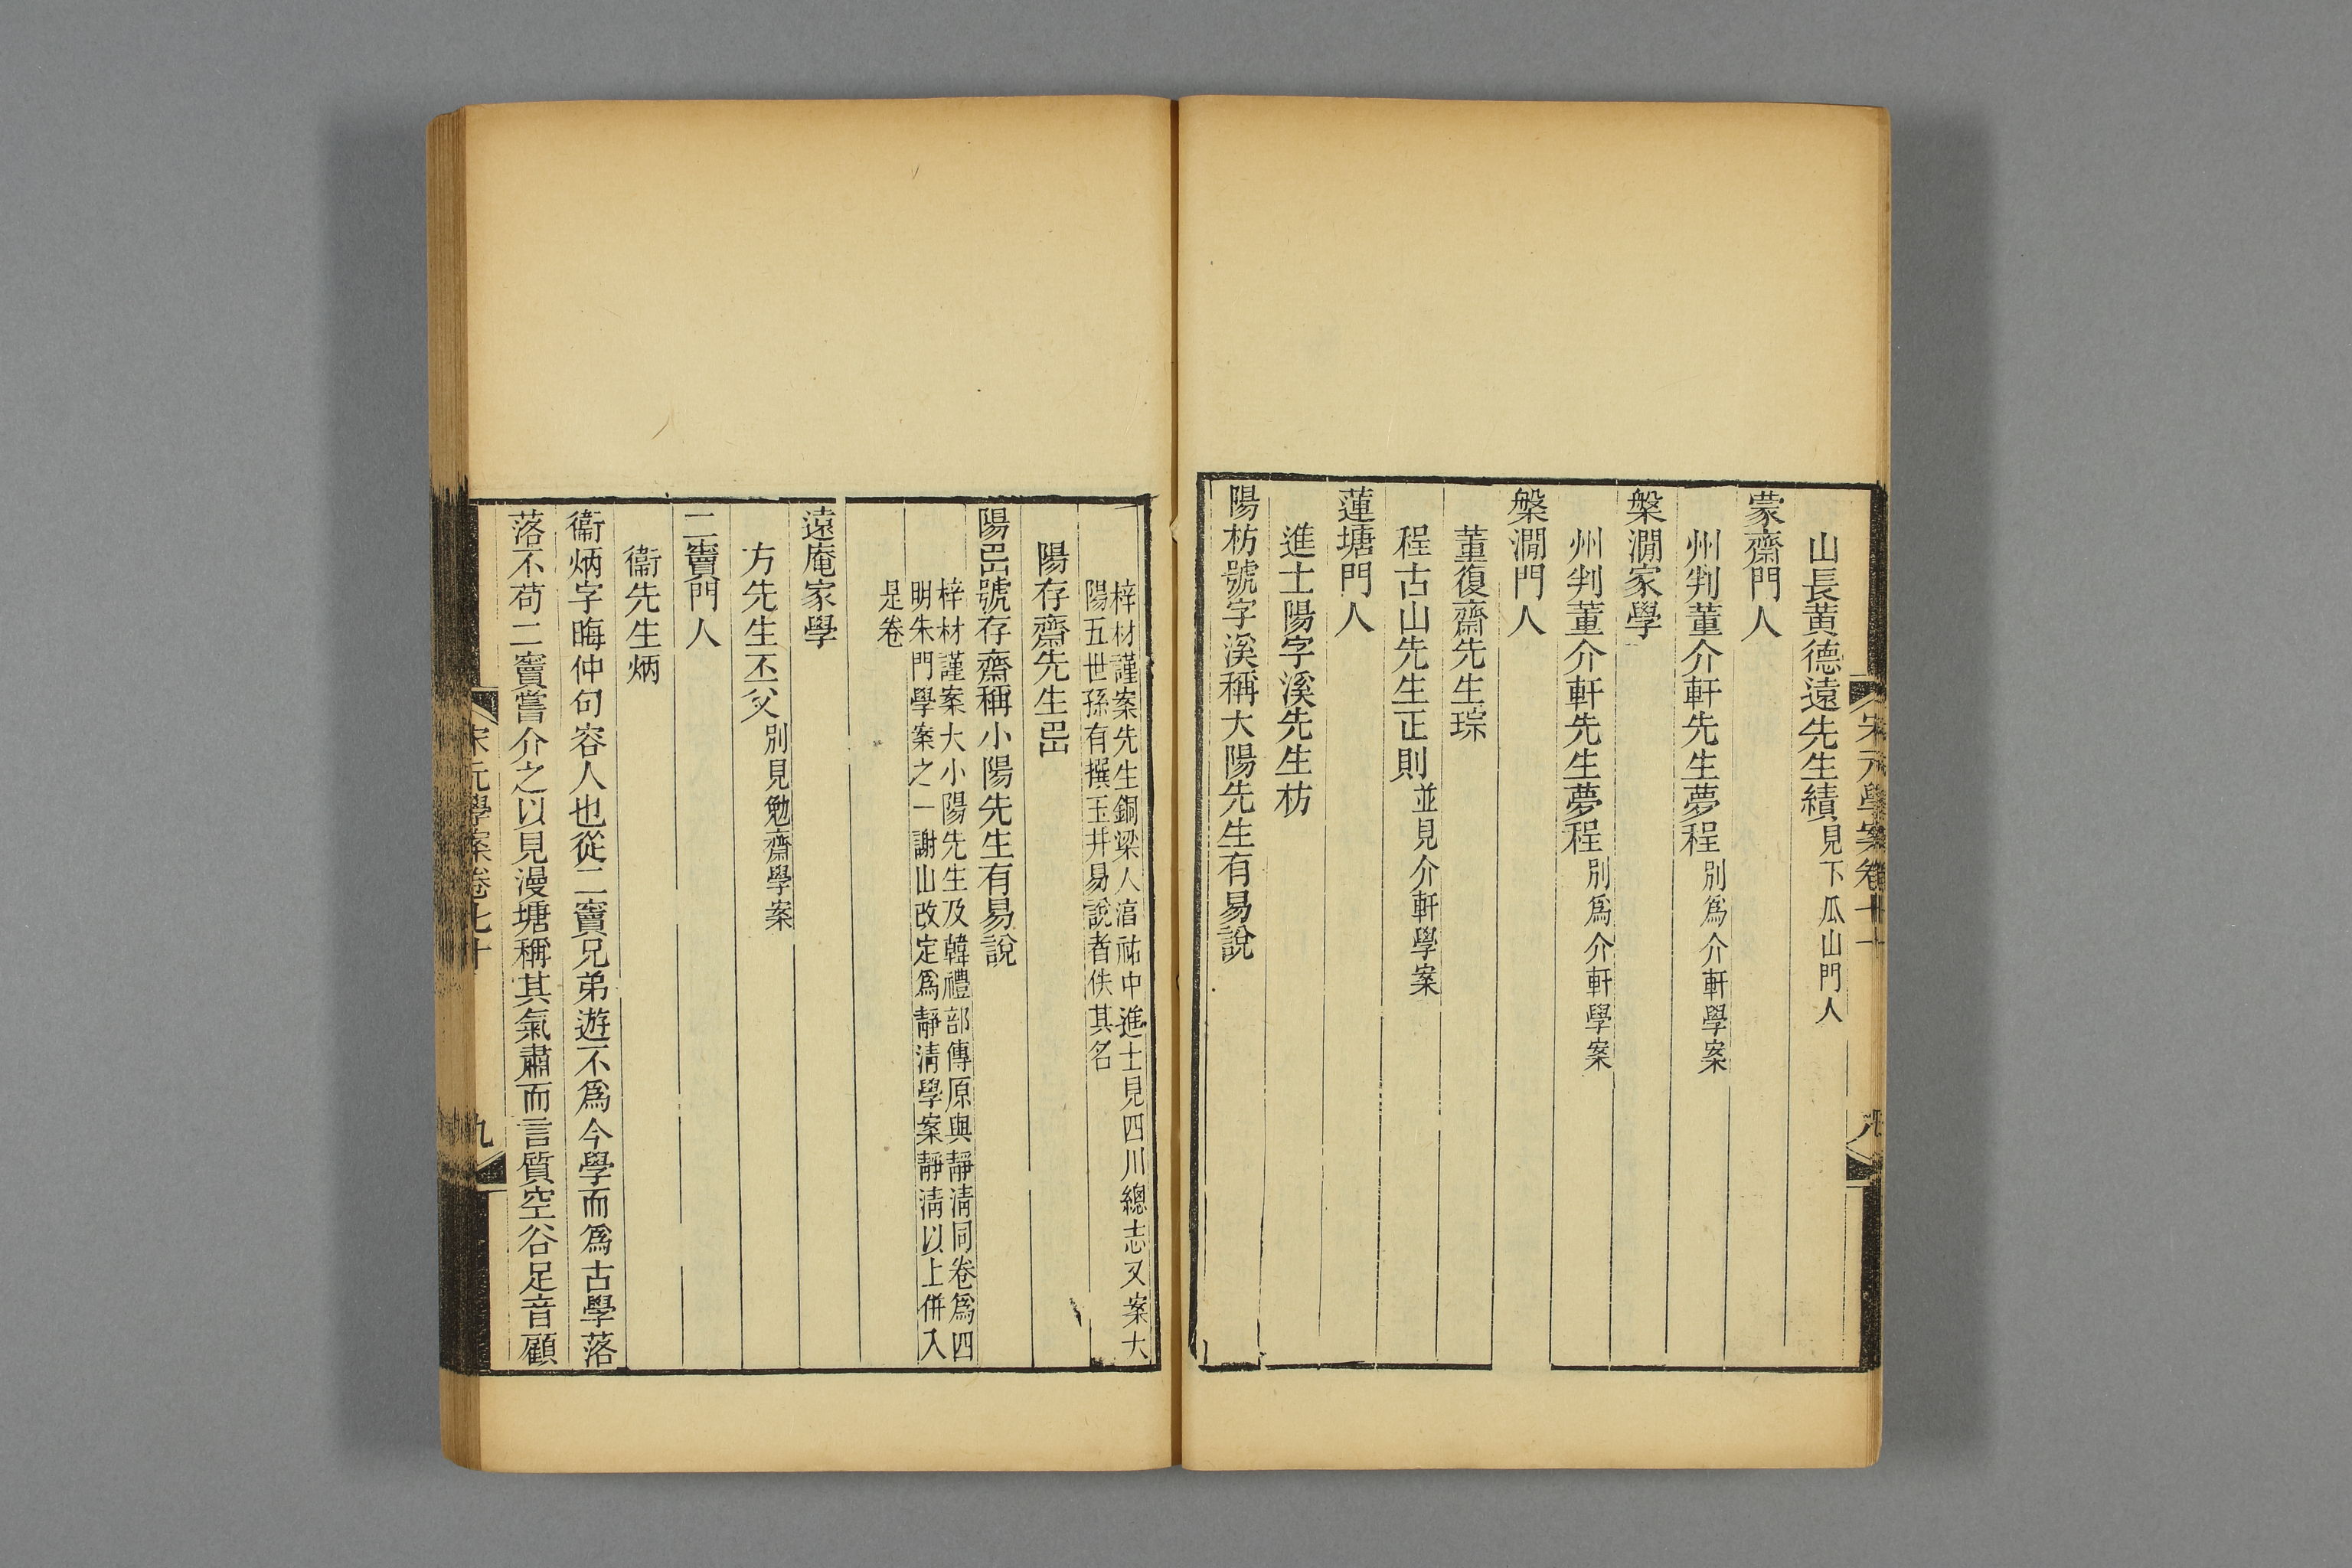 山長黃德遠先生績見下瓜山門人
蒙齋門人
州判董介軒先生夢程別爲介軒學案
槃澗家學
州判董介軒先生夢程別爲介軒學案
槃澗門人
董復齋先生琮
程古山先生正則並見介軒學案
蓮塘門人
進士陽字溪先生枋
陽枋號字溪稱大陽先生有易說
梓材謹案先生銅梁人湻祐中進士見四川總志又案大
陽五世孫有撰玉井易說者佚其名
陽存齋先生嵒
陽嵒號存齋稱小陽先生有易說
梓材謹案大小陽先生及韓禮部傳原與靜淸同卷爲四
明朱門學案之一謝山改定爲靜淸學案靜淸以上併入
是卷
遠庵家學
方先生丕父別見勉齋學案
二竇門人
衞先生炳
衞炳字晦仲句容人也從二竇兄弟遊不爲今學而爲古學落
落不苟二竇嘗介之以見漫塘稱其氣肅而言質空谷足音顧
宋元學案卷七十
九